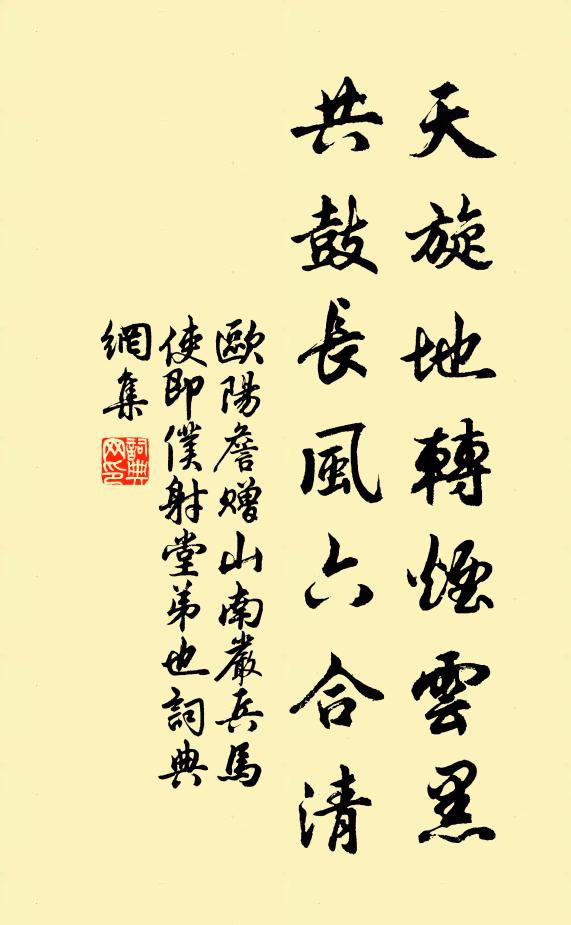 天旋地轉煙雲黑
共鼓長風六合清
歐陽詹贈山南嚴兵馬
使即僕射堂弟也詞典
網集
詞典
網印